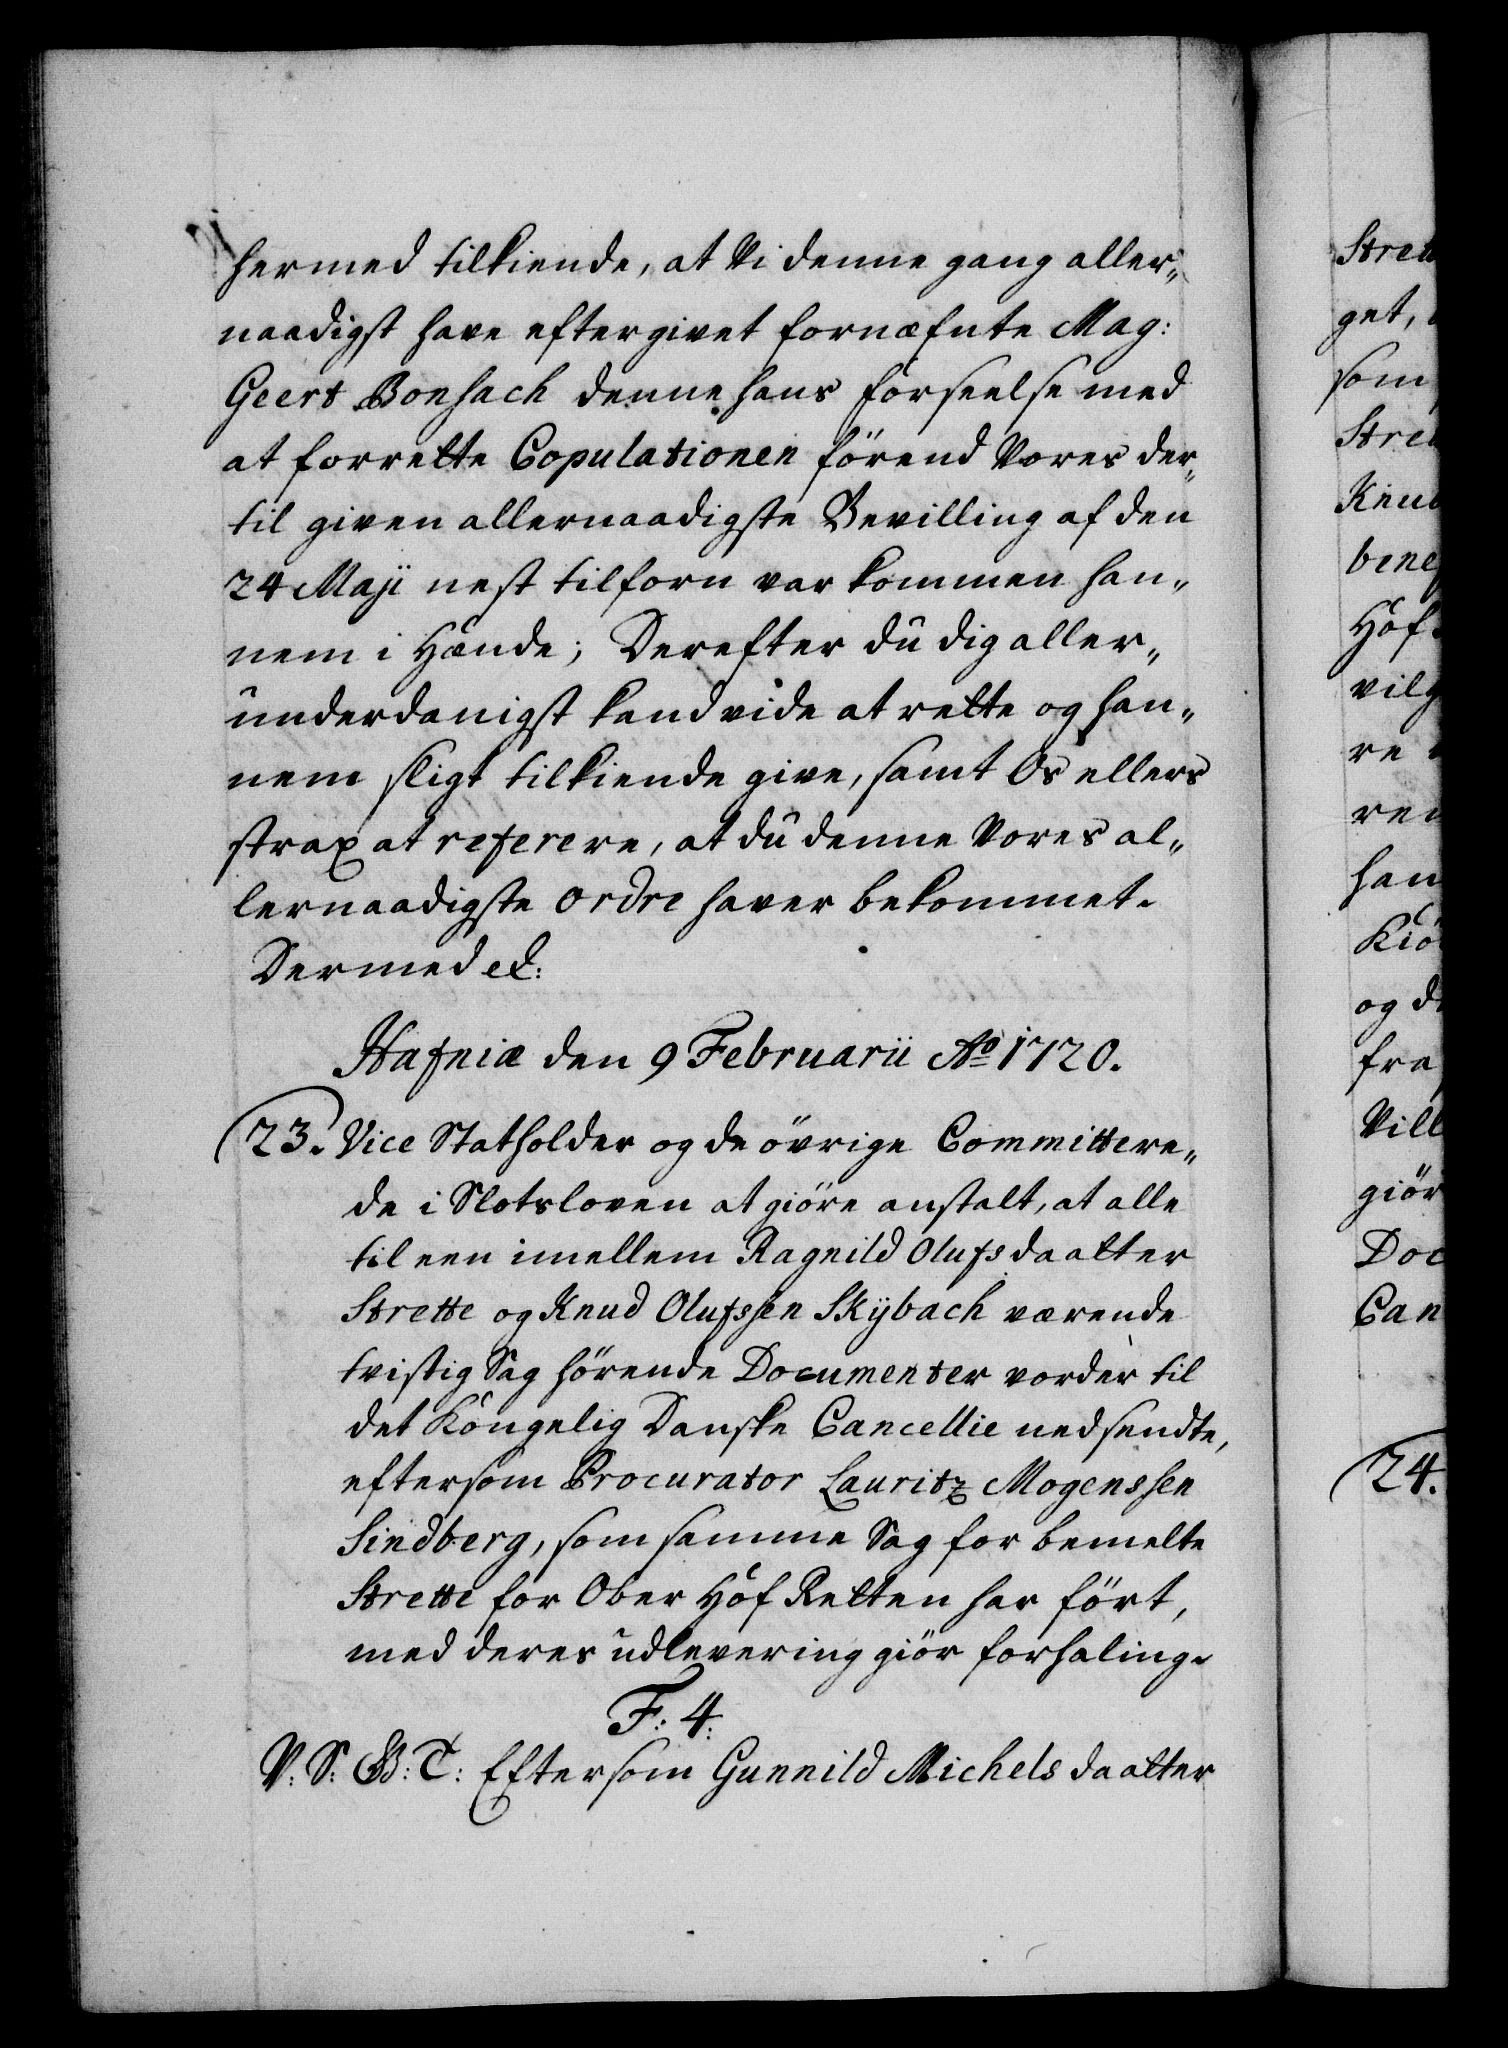 hermed tilkiende, at Vi denne gang aller„
naadigst have eftergivet fornæfnte Mag:
Geert Bonsach denne hans forseelse med
at forrette Copulationen förend Vores der„
til given allernaadigste Bevilling af den
24 Maji nest tilforn var kommen han„
nem i Hænde; Derefter du dig aller„
underdanigst kand vide at rette og han„
nem sligt tilkiende give, samt Os ellers
strax at referere, at du denne Vores al„
lernaadigste ordre haver bekommet.
Dermed et:
Hafniæ den 9 Februarii Ao 1720.
23. Vice Statholder og de övrige Committere„
de i Slotsloven at giöre anstalt, at alle
til een imellem Ragnild Olufs daatter
Strette og Knud Olufssen Skÿbach værende
tvistig Sag hörende Documenter vorder til
det Kongelig Danske Cancellie nedsendte,
eftersom Procurator Lauritz Mogenssen
Sindberg, som samme Sag for bemelte
Strette for Ober Hof Retten har fört,
med deres udlevering giör forhaling.
F: 4:
V: S: G: T: Eftersom Gunnild Michels daatter
get,
som
Höf
re
han
og
fra
giör
24.